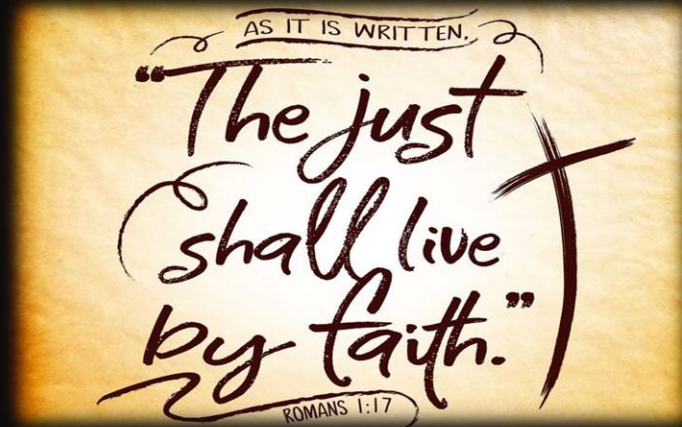 AS IT IS WRITTEN,
“The just
shall live
by faith.”
ROMANS 1:17